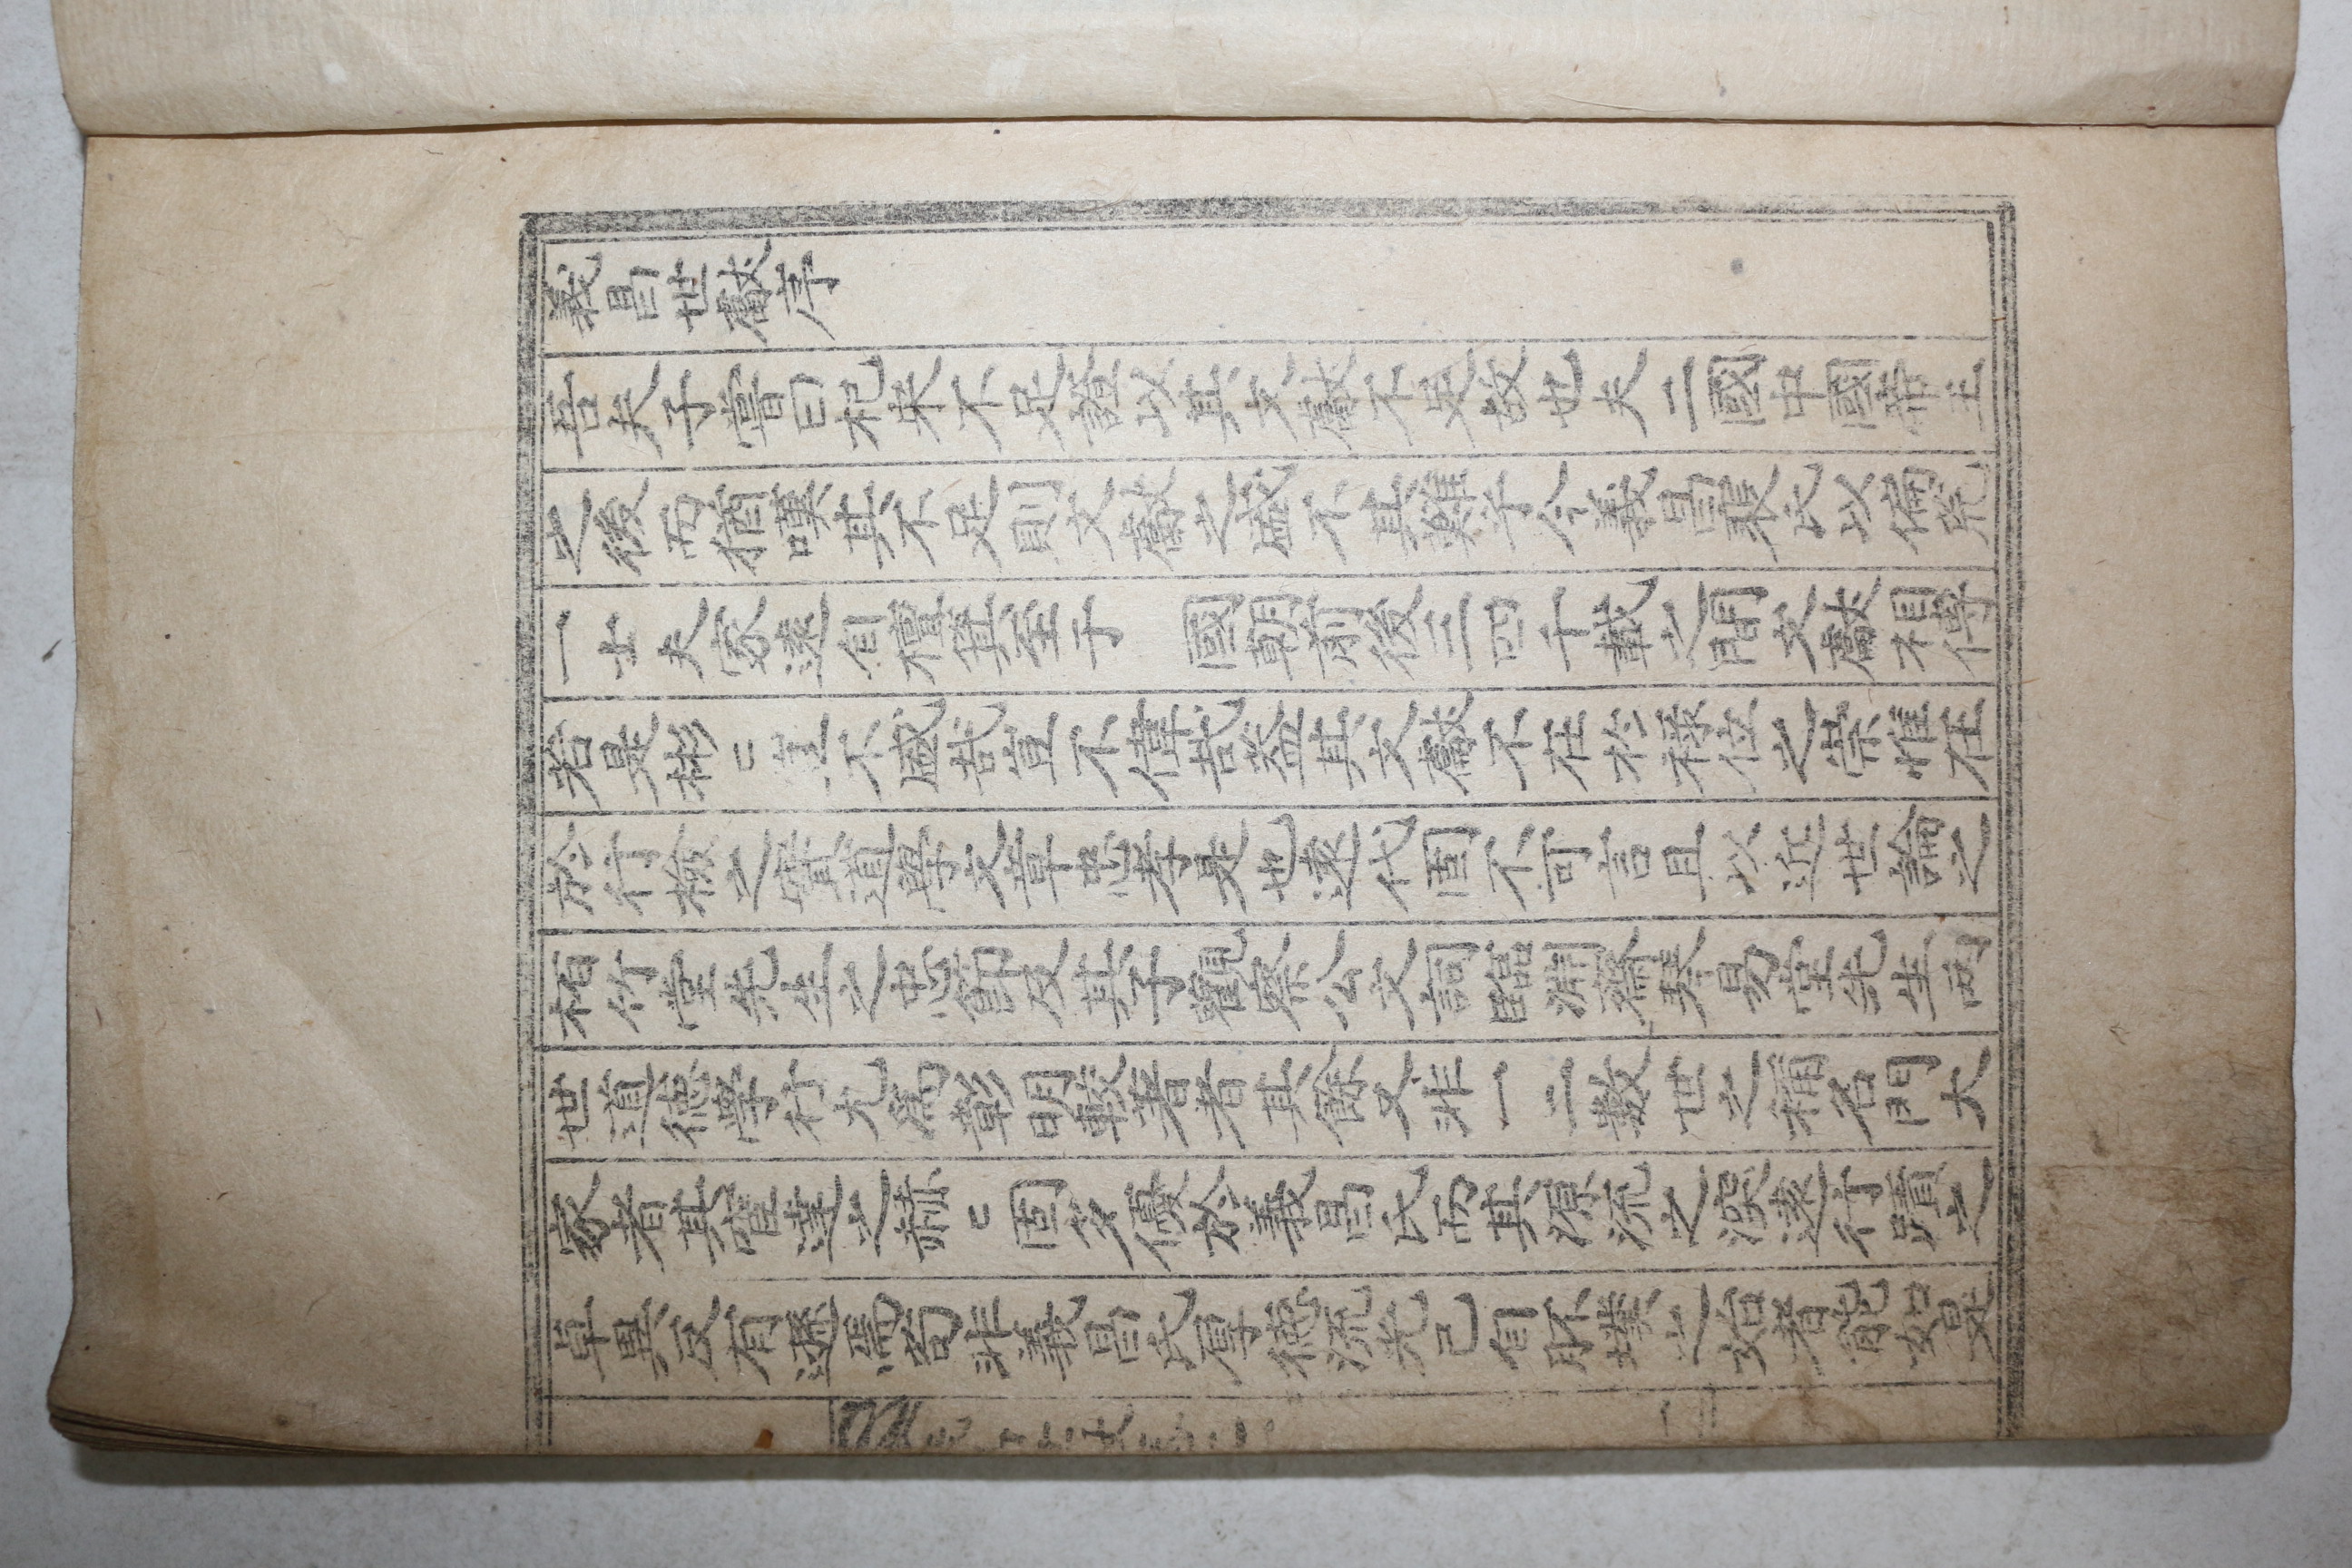 義昌世獻序
吾夫子嘗曰杞宋不足證以其文獻不足故也夫二國中國帝王
之後而猶嘆其不足則文獻之盛不其難乎今義昌裴氏以偏荒
一士大夫家遠自檀箕至于 國朝前後三四千載之間文獻相傳
若是彬〻豈不盛哉豈不偉哉盖其文獻不在於祿位之崇惟在
於行檢之篤道學文章忠孝是也遠代固不可言且以近世論之
栢竹堂先生之忠節及其子觀察公文詞臨淵齋慕易堂先生兩
世道德學行尤爲彰明較著者其餘又非一二數世之稱名門大
家者其宦達之赫〻固多優於義昌氏而其源流之深遠行蹟之
卓異反有遜焉苟非義昌氏厚德流光已自肸蠁之始者能如是